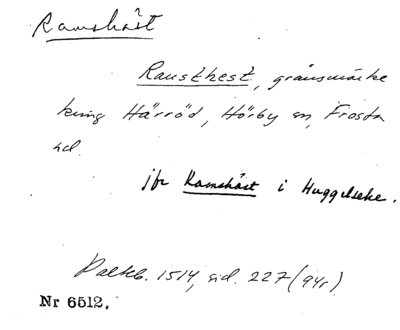 Ramshäst
Rausthest, gränsmärke
kring Härröd, Hörby sn, Frosta
hd.
jfr Ramshäst i Huggelseke.
Palteb. 1514, sid. 227 (94r).
Nr 6512.